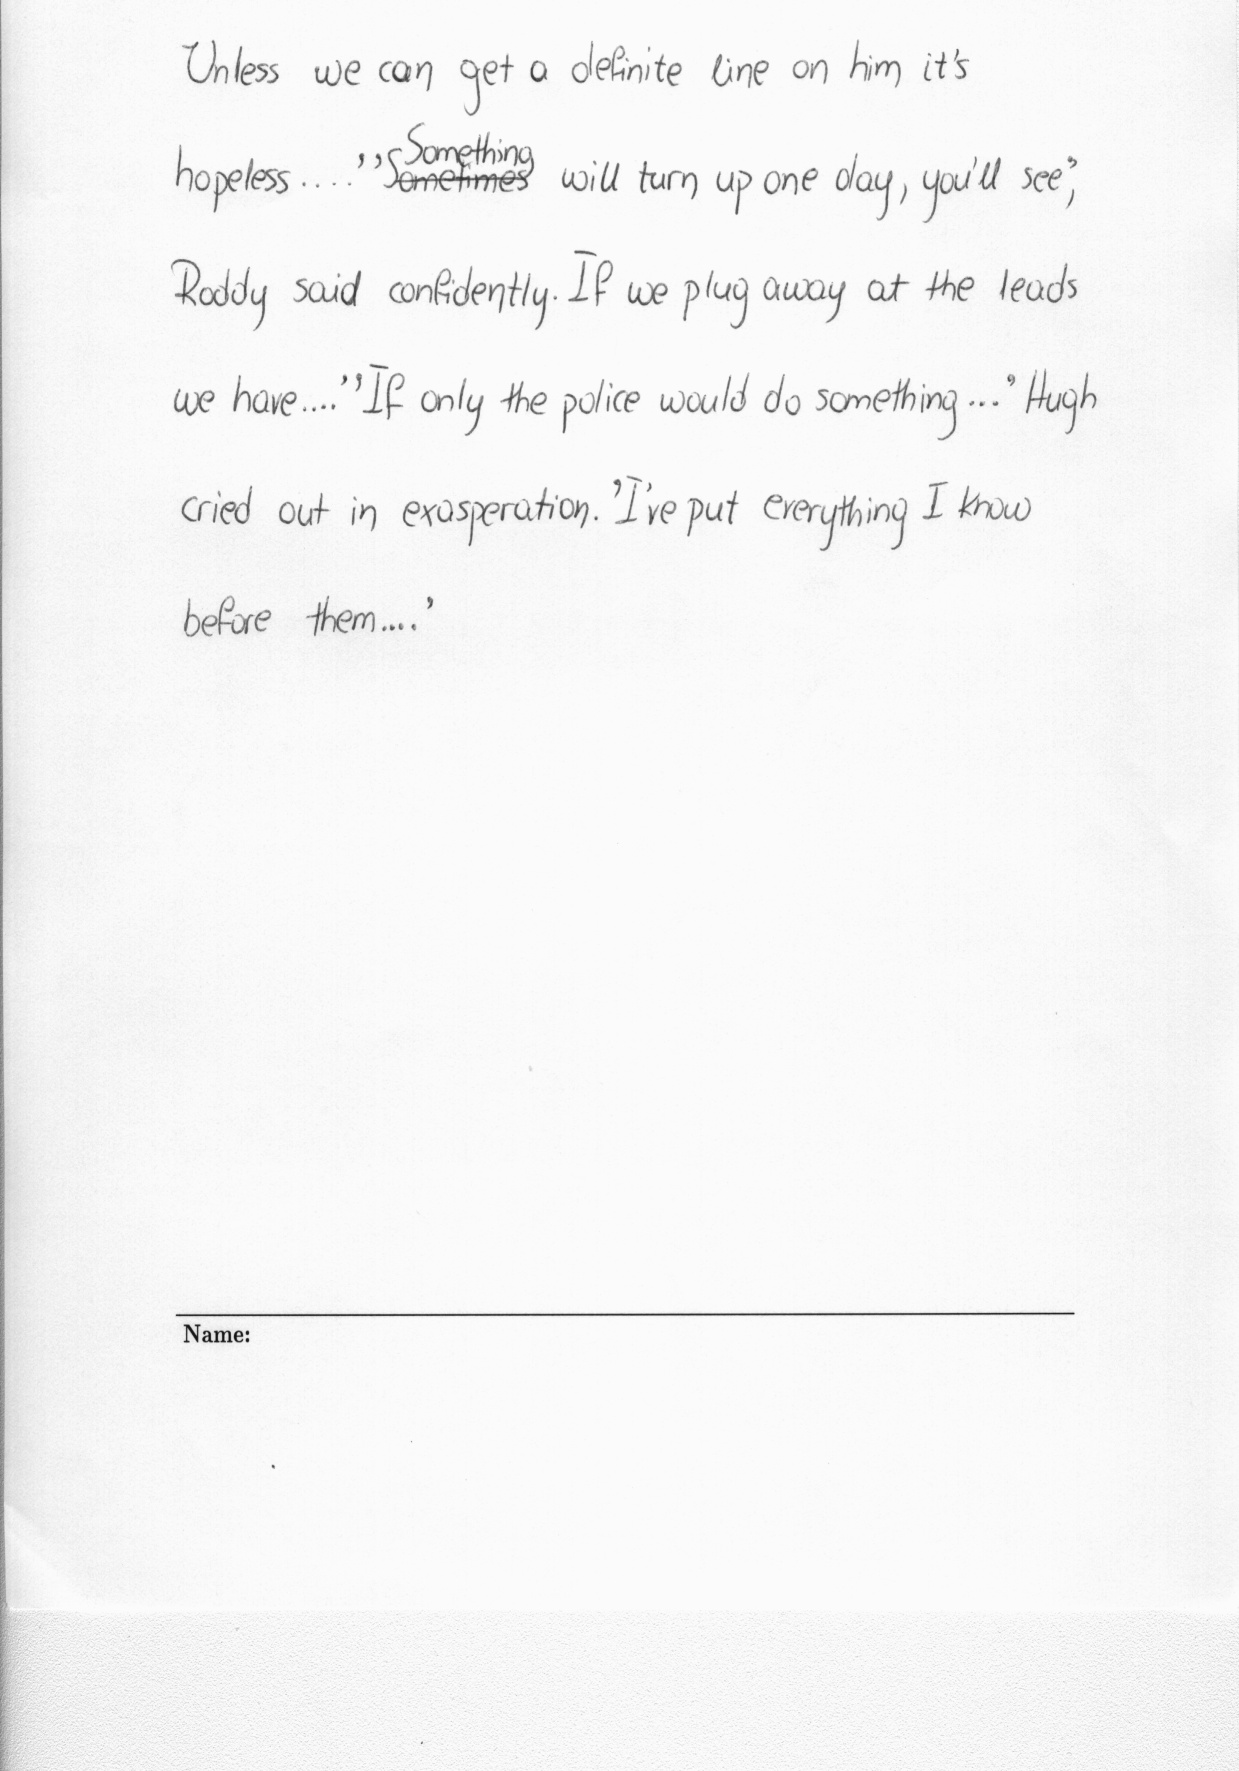 Unless we can get a definite line on him it's
hopeless....' 'Something ~~Sometimes~~ will turn up one day, you'll see',
Roddy said confidently. If we plug away at the leads
we have....' 'If only the police would do something...' Hugh
cried out in exasperation. 'I've put everything I know
before them....'
Name: